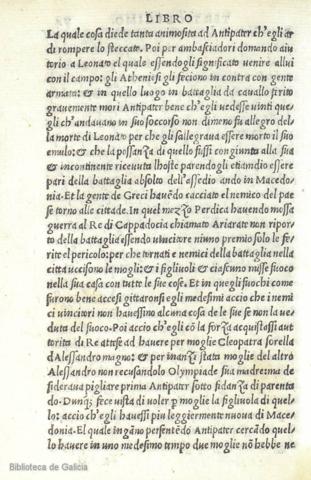 LIBRO
La quale cosa diede tanta animosita ad Antipater ch'egli ar di
di rompere lo steccato. Poi per ambasciadori domando aiu
torio a Leonato el quale essendogli significato venire allui
con il campo: gli Atheniesi gli feciono in contra con gente
armata: & in quello luogo in battaglia da cavallo ferito
gravemente mori Antipater bene ch'egli vedesse vinti que
gli ch'andavano in suo soccorso non dimeno fu allegro del
la morte di Leonato per che gli sallegrava essere morto il suo
emulo: & che la possanza di quello fussi congiunta alla sua
& incontinente ricevuta lhoste parendogli etiandio essere
pari della battaglia absolto dell'assedio ando in Macedo
nia. Et la gente de Greci havēdo cacciato el nemico del pae
se torno alle cittade. In quel mezzo Perdica havendo mossa
guerra al Re di Cappadocia chiamato Ariarate non ripor
to della battaglia essendo vincitore niuno premio solo le fe
rite el pericolo: per che tornati e nemici della battaglia nella
citta uccisono le mogli: & i figliuoli & ciascuno misse fuoco
nella sua casa con tutte le sue cose. Et in quegli fuochi come
furono bene accesi gittaronsi egli medesimi accio che i nemi
ci vincitori non havessino alcuna cosa de le sue se non la ve
duta del fuoco. Poi accio ch'egli cō la forza acquistassi aut
torita di Re attese ad havere per moglie Cleopatra sorella
d'Alessandro magno: & per inanzi stata moglie del altro
Alessandro non recusandolo Olympiade sua madre ma de
siderava pigliare prima Antipater sotto fidanza di parenta
do. Dunq; fece vista di voler p moglie la figliuola di quel
lo: accio ch'egli havessi piu leggiermente nuova di Mace
donia. El quale ingāno persentēdo Antipater cercādo quel
lo havere in uno medesimo tempo due moglie nō hebbe ne
Biblioteca de Galicia